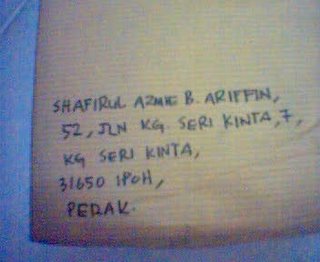 SHAFIRUL AZMIE B. ARIFFIN,
52, JLN KG. SERI KINTA, 7,
KG SERI KINTA,
31650 IPOH,
PERAK.